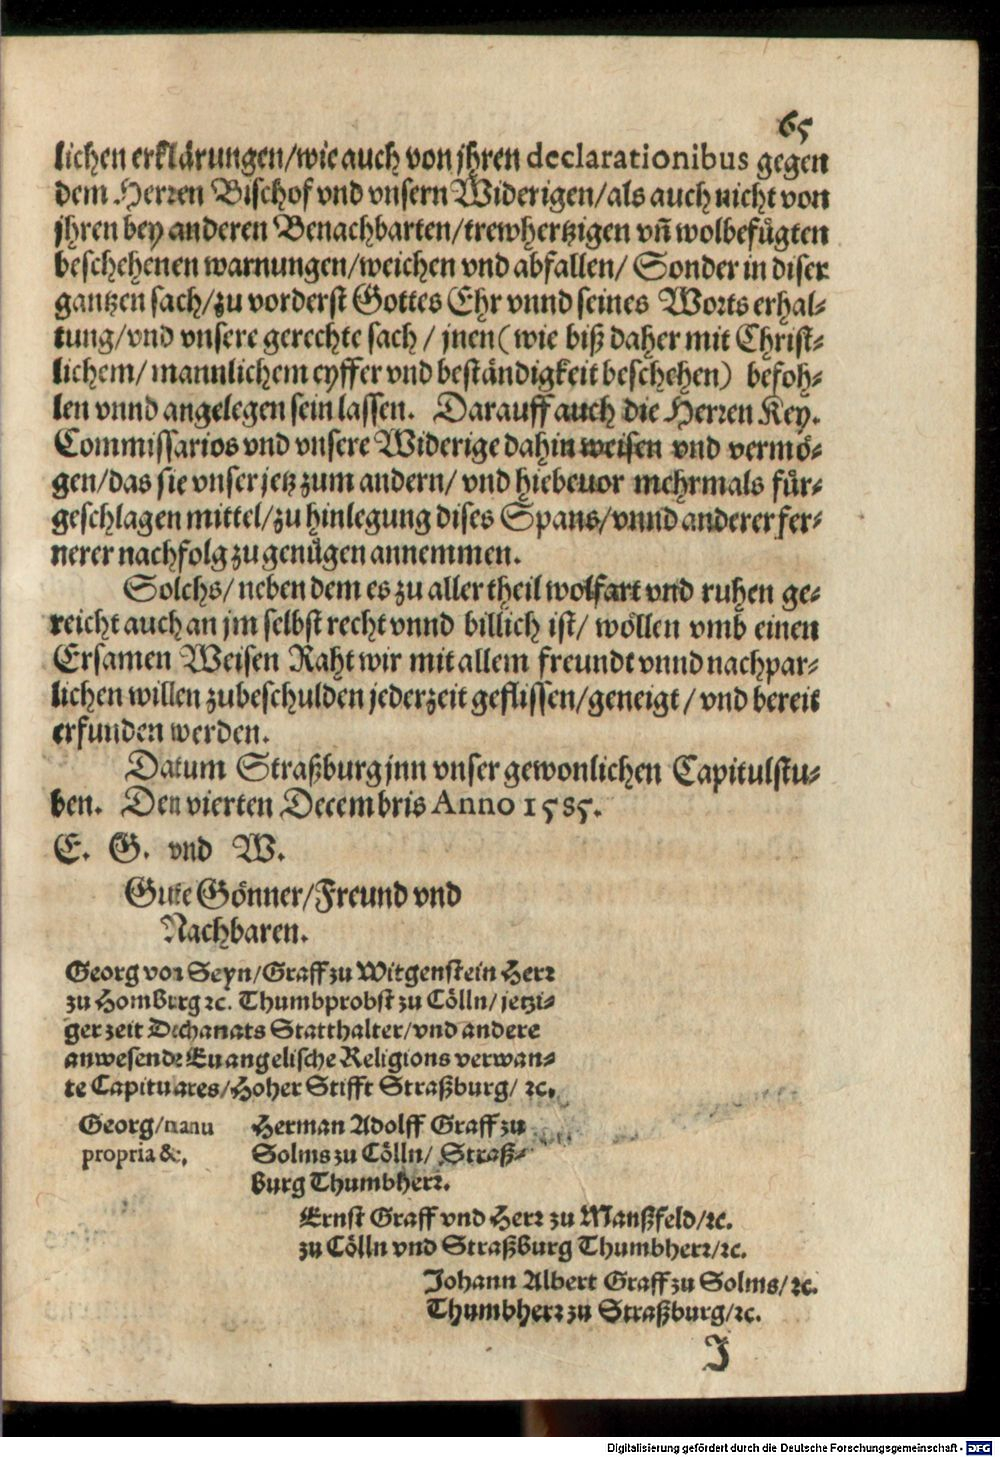 65
lichen erklärungen/wie auch von jhren declarationibus gegen
dem Herren Bischof vnd vnsern Widerigen/als auch nicht von
jhren bey anderen Benachbarten/trewhertzigen vñ wolbefůgten
beschehenen warnungen/weichen vnd abfallen/ Sonder in diser
gantzen sach/zu vorderst Gottes Ehr vnnd seines Worts erhal-
tung/vnd vnsere gerechte sach / jnen (wie biß daher mit Christ-
lichem/ mannlichem eyffer vnd beständigkeit beschehen) befoh-
len vnnd angelegen sein lassen. Darauff auch die Herren Key.
Commissarios vnd vnsere Widerige dahin weisen vnd vermö-
gen/das sie vnser jetz zum andern/ vnd hiebeuor mehrmals für-
geschlagen mittel/zu hinlegung dises Spans/vnnd anderer fer-
nerer nachfolg zu genügen annemmen.
Solchs/ neben dem es zu aller theil wolfart vnd ruhen ge-
reicht auch an jm selbst recht vnnd billich ist/ wöllen vmb einen
Ersamen Weisen Raht wir mit allem freundt vnnd nachpar-
lichen willen zubeschulden jederzeit geflissen/geneigt/ vnd bereit
erfunden werden.
Datum Straßburg jnn vnser gewonlichen Capitulstu-
ben. Den vierten Decembris Anno 1585.
E. G. vnd W.
Gute Gönner/Freund vnd
Nachbaren.
Georg von Seyn/Graff zu Witgenstein Herr
zu Homburg ꝛc. Thumbprobst zu Cölln/ jetzi-
ger zeit Dechanats Statthalter/vnd andere
anwesende Euangelische Religions verwan-
te Capitulares/Hoher Stifft Straßburg/ ꝛc.
Georg/manu
propria &c.
Herman Adolff Graff zu
Solms zu Cölln/ Straß-
burg Thumbherr.
Ernst Graff vnd Herr zu Manßfeld/ꝛc.
zu Cölln vnd Straßburg Thumbherr/ꝛc.
Johann Albert Graff zu Solms/ꝛc.
Thumbherr zu Straßburg/ꝛc.
J
Digitalisierung gefördert durch die Deutsche Forschungsgemeinschaft - DFG